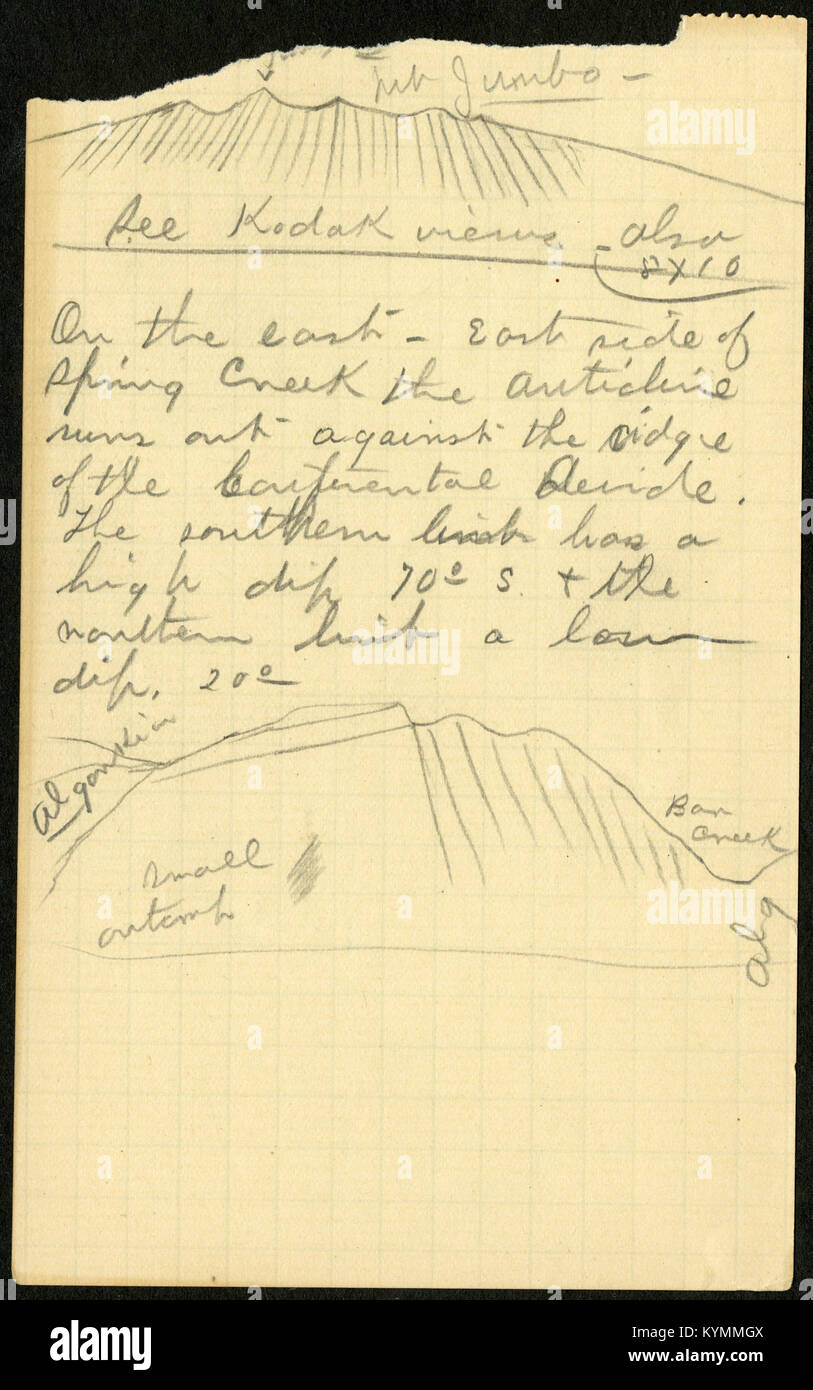 Mt Jumbo –
See Kodak views – also
8 x 10
On the east – East side of
Spring Creek the anticline
runs out against the ridge
of the Continental Divide.
The southern limb has a
high dip 70° S. + the
northern limb a low
dip. 20°
Algonkian
Creek
small
Alg
alamy
a
alamy
a
alamy
a
alamy
a
a
a
a
a
alamy
Image ID: KYMMGX
www.alamy.com